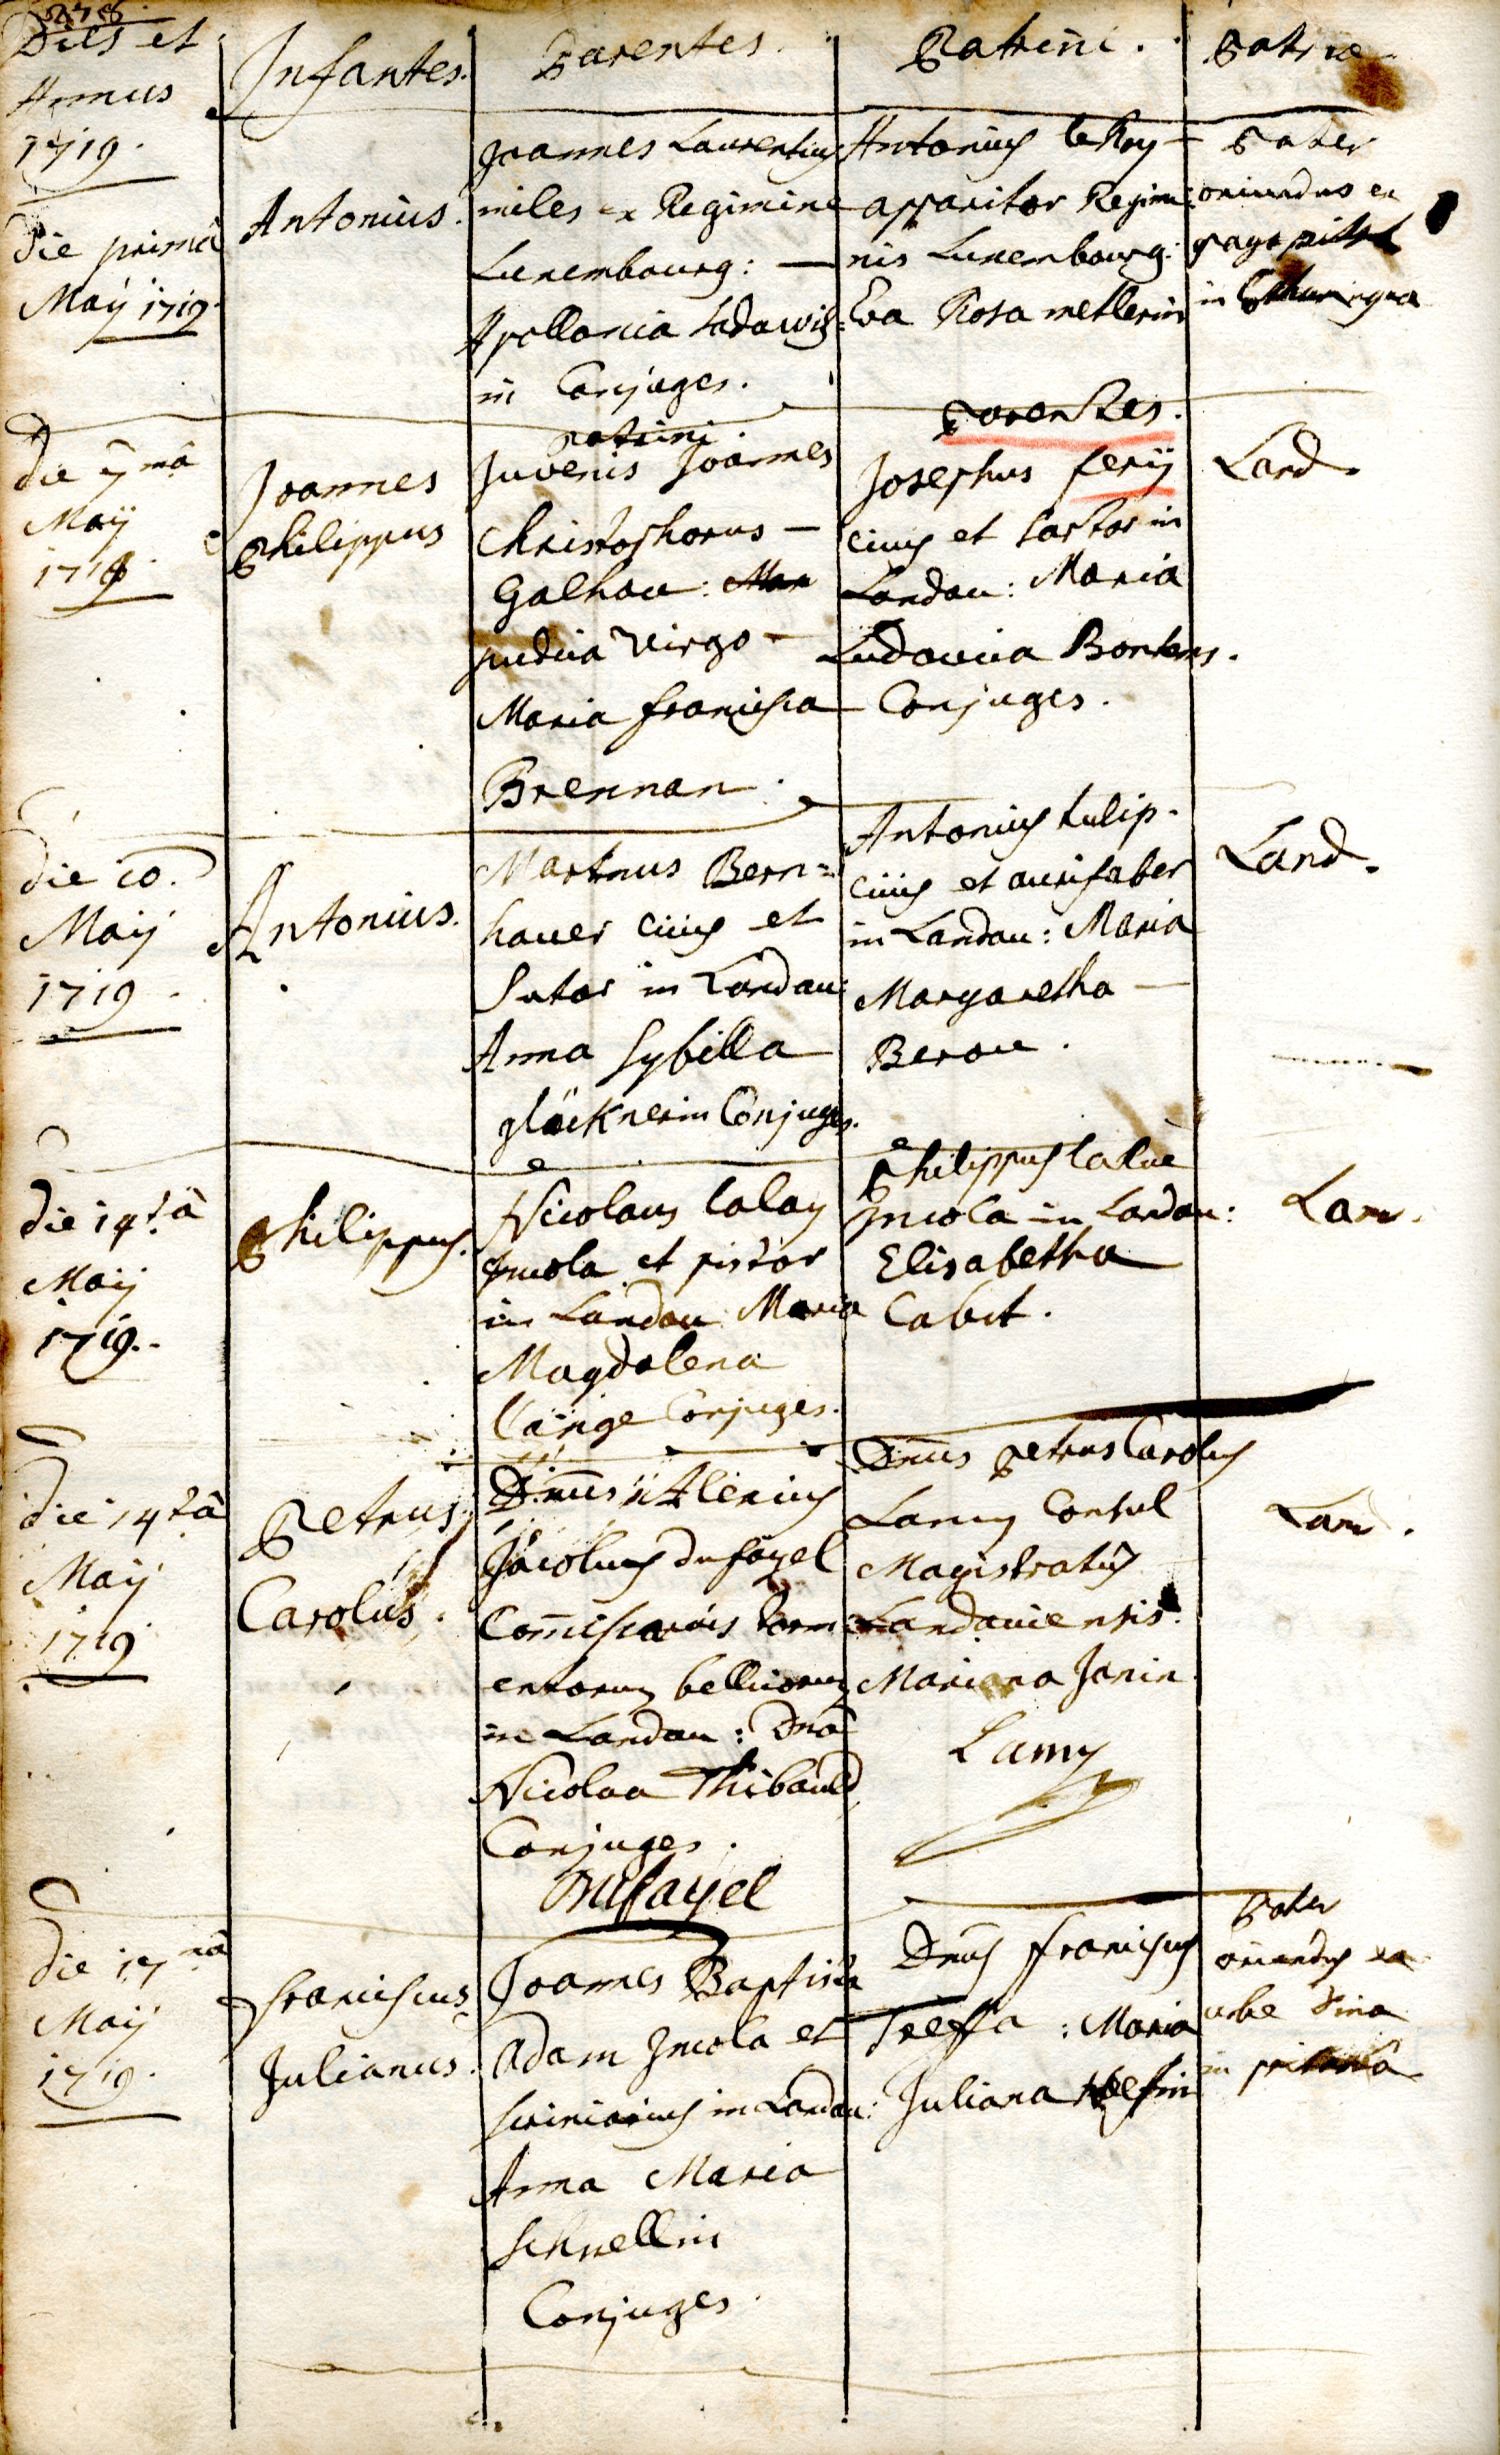 278.
Dies et
Annus
1719.
Infantes.
Parentes.
Patrini.
Patriæ
die primâ
Maÿ 1719.
Antonius.
Joannes Laurentius
miles ex Regimine
Luxembourg: —
Apollonia Ladawig=
in Conjuges.
Antonius le Roy —
apparitor Regimi
nis Luxembourg:
Eva Rosa metlerin
Pater
oriundus ex
pago
in
die 7mâ
Maÿ
1719.
Joannes
Philippus
patrini.
Juvenis Joannes
Christophorus —
Galhau:
pudica virgo —
Maria francisca
Brennan.
Parentes.
Josephus ferÿ
civis et sartor in
Landau: Maria
Ludovica Bontems.
Conjuges.
Land.
die 10.
Maÿ
1719.
Antonius.
Martinus Bern=
hauer civis et
Sutor in Landau:
Anna Sybilla
glöcknerin Conjuges.
Antonius tulip.
civis et aurifaber
in Landau: Maria
Margaretha —
Berou.
Land.
die 14tâ
Maÿ
1719.
Philippus.
Nicolaus lalay
Incola et pistor
in Landau Maria
Magdalena
lange Conjuges.
Philippus laRue
Incola in Landau:
Elisabetha
Cabit.
Lan.
die 14tâ
Maÿ
1719
Petrus
Carolus.
Dnus Alexius
Jacobus dufayel
Comissarius torm
entorum bellicorum
in Landau: Dna
Nicolaa Thibauld
Conjuges.
Dufayel
Dnus Petrus Carolus
Lamy Consul
Magistratûs
Landaviensis.
Mariana Janin.
Lamy
Lan.
die 17mâ
Maÿ
1719.
franciscus
Julianus.
Joannes Baptista
Adam Incola et
scriniarius in Landau:
Anna Maria
schnellin
Conjuges.
Dnus franciscus
Treffa: Maria
Juliana
Pater
oriundus ex
urbe
in